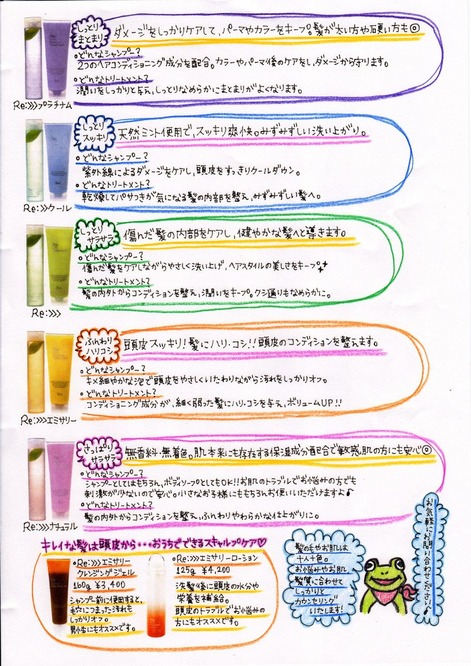 しっとり
まとまり
ダメージをしっかりケアして、パーマやカラーをキープ。髪が太い方や硬い方も◎
どんなシャンプー?
2つのヘアコンディショニング成分を配合。カラーやパーマ後のケアをし、ダメージから守ります。
どんなトリートメント?
潤いをしっかりと与え、しっとりなめらかにまとまりがよくなります。
Re:>>>プラチナム
しっとり
スッキリ
天然ミント使用で、スッキリ爽快。みずみずしい洗い上がり。
どんなシャンプー?
紫外線によるダメージをケアし、頭皮をすっきりクールダウン。
どんなトリートメント?
乾燥してパサつきが気になる髪の内部を整え、みずみずしい髪へ。
Re:>>>クール
しっとり
サラサラ
傷んだ髪の内部をケアし、健やかな髪へと導きます。
どんなシャンプー?
傷んだ髪をケアしながらやさしく洗い上げ、ヘアスタイルの美しさをキープ。
どんなトリートメント?
髪の内外からコンディションを整え、潤いをキープ。クシ通りもなめらかに。
Re:>>>
ふんわり
ハリコシ
頭皮スッキリ!髪にハリ・コシ!!頭皮のコンディションを整えます。
どんなシャンプー?
キメ細やかな泡で頭皮をやさしくいたわりながら汚れをしっかりオフ。
どんなトリートメント?
コンディショニング成分が、細く弱った髪にハリ・コシを与え、ボリュームUP!!
Re:>>>エミサリー
さっぱり
サラサラ
無香料・無着色。肌本来にも存在する保湿成分配合で敏感肌の方にも安心◎
どんなシャンプー?
シャンプーとしてはもちろん、ボディソープとしてもOK!!お肌のトラブルでお悩みの方でも
刺激が少ないので安心。小さなお子様にももちろんお使いいただけますよ♪
どんなトリートメント?
髪の内外からコンディションを整え、ふんわりやわらかな仕上がりに。
Re:>>>ナチュラル
キレイな髪は頭皮から・・・おうちでできるスキャルプケア♡
Re:>>>エミサリー
クレンジングジェル
160g ¥3,400
シャンプー前に使用すると、
毛穴につまった汚れも
しっかりオフ。
男性にもオススメです。
Re:>>>エミサリーローション
125g ¥4,200
洗髪後に頭皮の水分や
栄養を補給。
頭皮のトラブルでお悩みの
方にもオススメです。
髪の毛やお肌は
十人十色。
お悩みやお肌
髪質に合わせて
しっかりと
カウンセリング
いたします!
お気軽に
お問い合わせ
ください♪